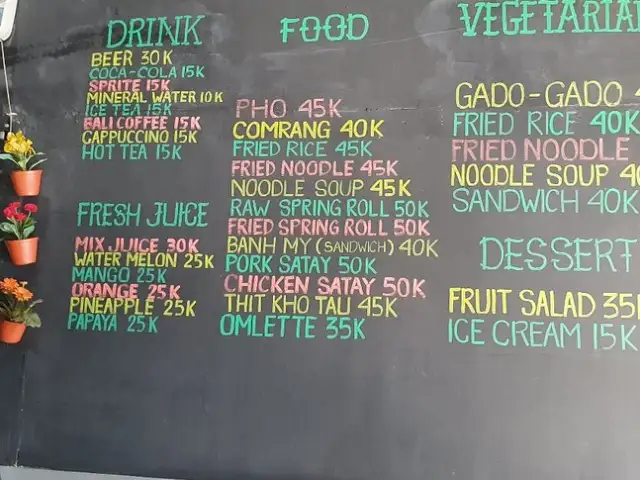 DRINK
BEER 30K
COCA-COLA 15K
SPRITE 15K
MINERAL WATER 10K
ICE TEA 15K
BALI COFFEE 15K
CAPPUCCINO 15K
HOT TEA 15K
FRESH JUICE
MIX JUICE 30K
WATER MELON 25K
MANGO 25K
ORANGE 25K
PINEAPPLE 25K
PAPAYA 25K
FOOD
PHO 45K
COMRANG 40K
FRIED RICE 45K
FRIED NOODLE 45K
NOODLE SOUP 45K
RAW SPRING ROLL 50K
FRIED SPRING ROLL 50K
BANH MY (SANDWICH) 40K
PORK SATAY 50K
CHICKEN SATAY 50K
THIT KHO TAU 45K
OMLETTE 35K
VEGETARIAN
GADO-GADO
FRIED RICE 40K
FRIED NOODLE
NOODLE SOUP 40
SANDWICH 40K
DESSERT
FRUIT SALAD 35K
ICE CREAM 15K